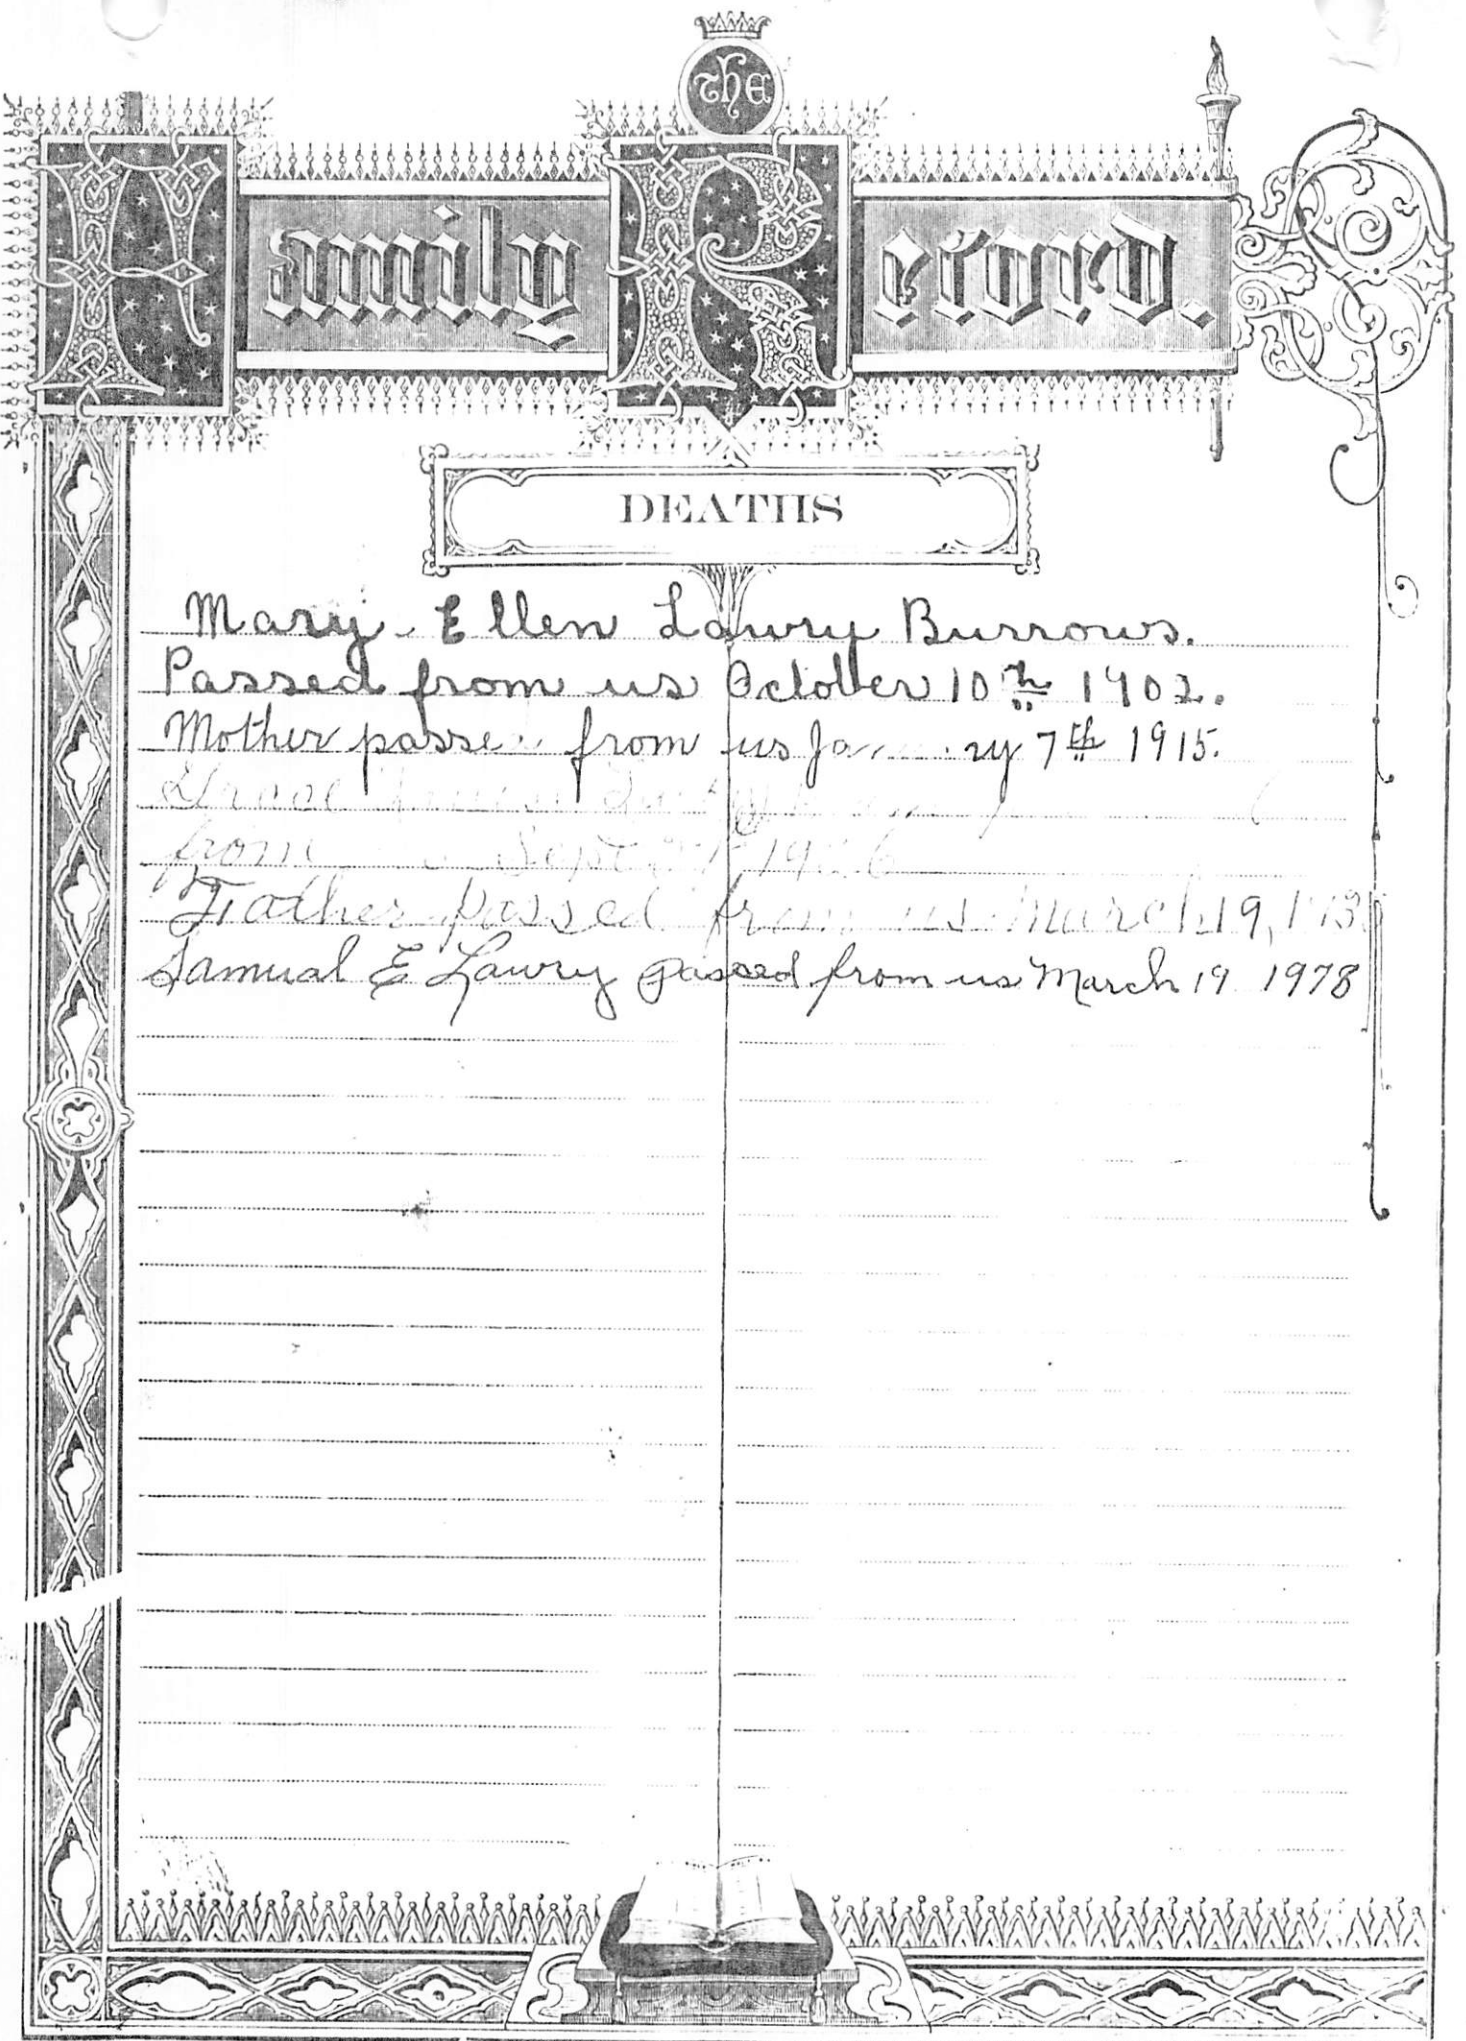 The
Family Record.
DEATHS
Mary Ellen Lawry Burrows.
Passed from us October 10th 1902.
Mother passe from us Ja ry 7th 1915.
Grace
from Sept 19 6
Father passed from us March 19,
Samual E Lawry passed from us March 19 1978